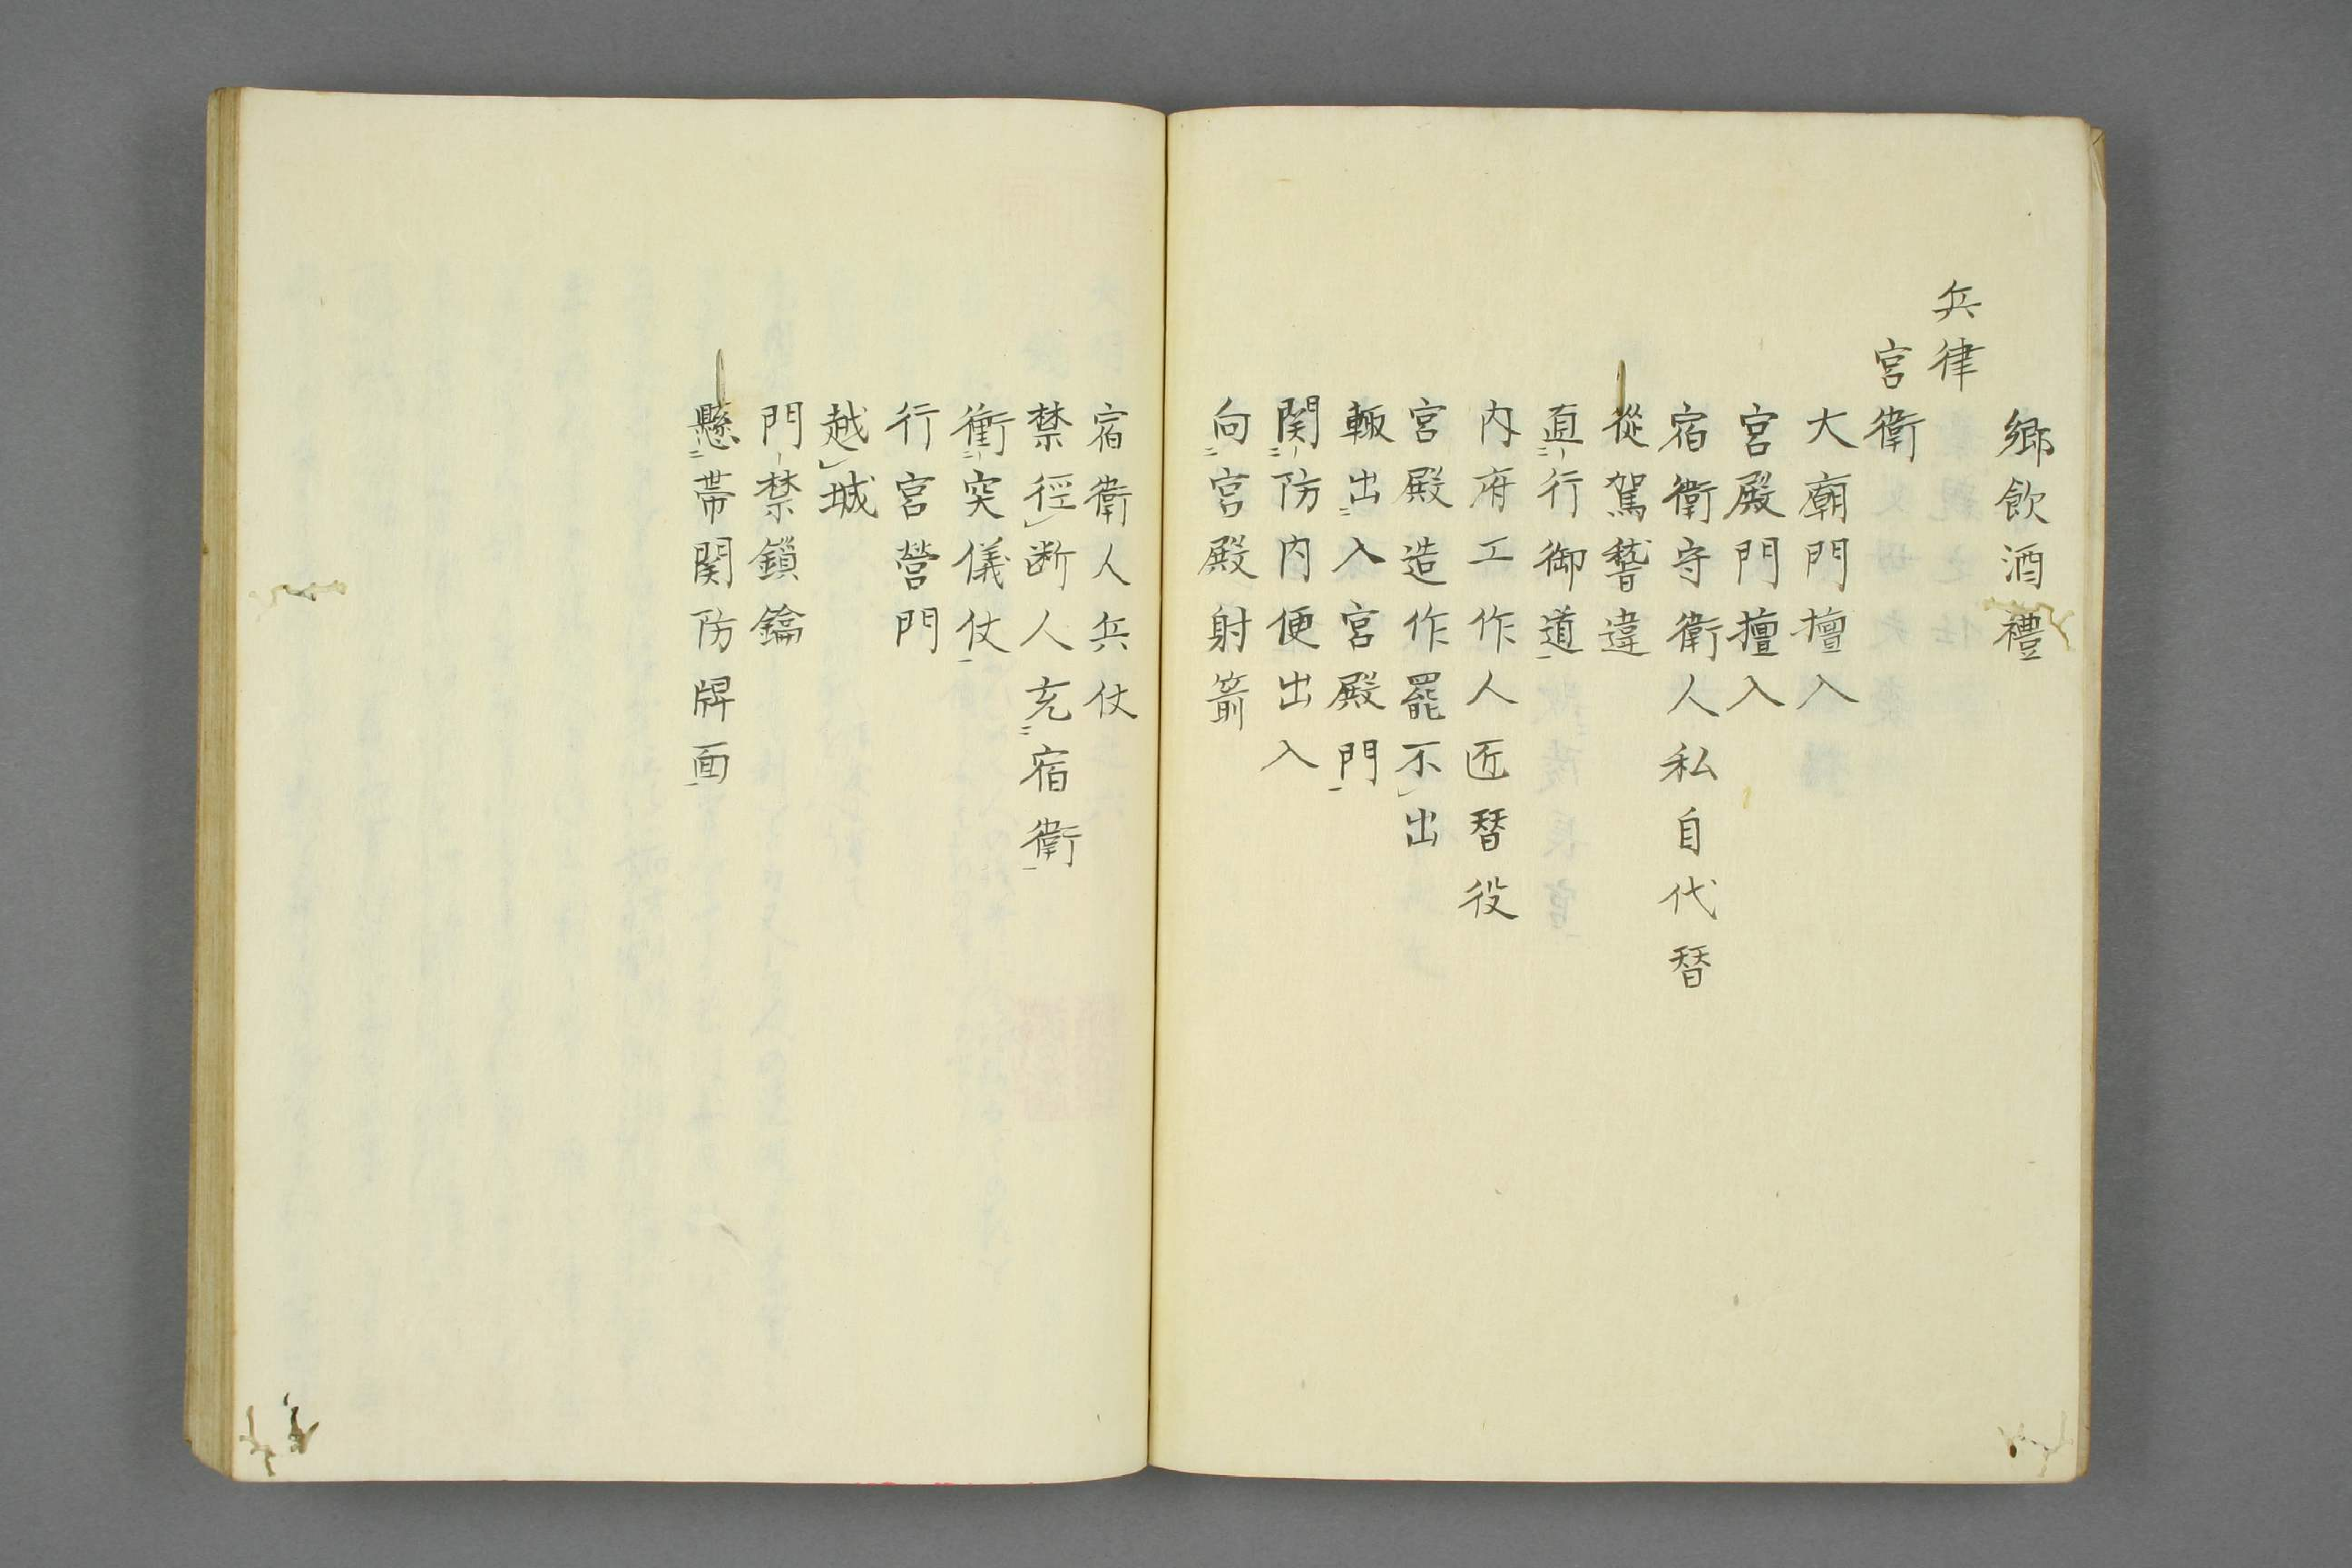 鄉飲酒禮
兵律
宮衛
大廟門擅入
宮殿門擅入
宿衛守衛人私自代替
從駕稽違
直行御道
内府工作人匠替役
宮殿造作罷不出
輙出入宮殿門
関防内使出入
向宮殿射箭
宿衛人兵仗
禁徑断人充宿衛
衝突儀仗
行宮營門
越城
門禁鎖鑰
懸帯関防牌面